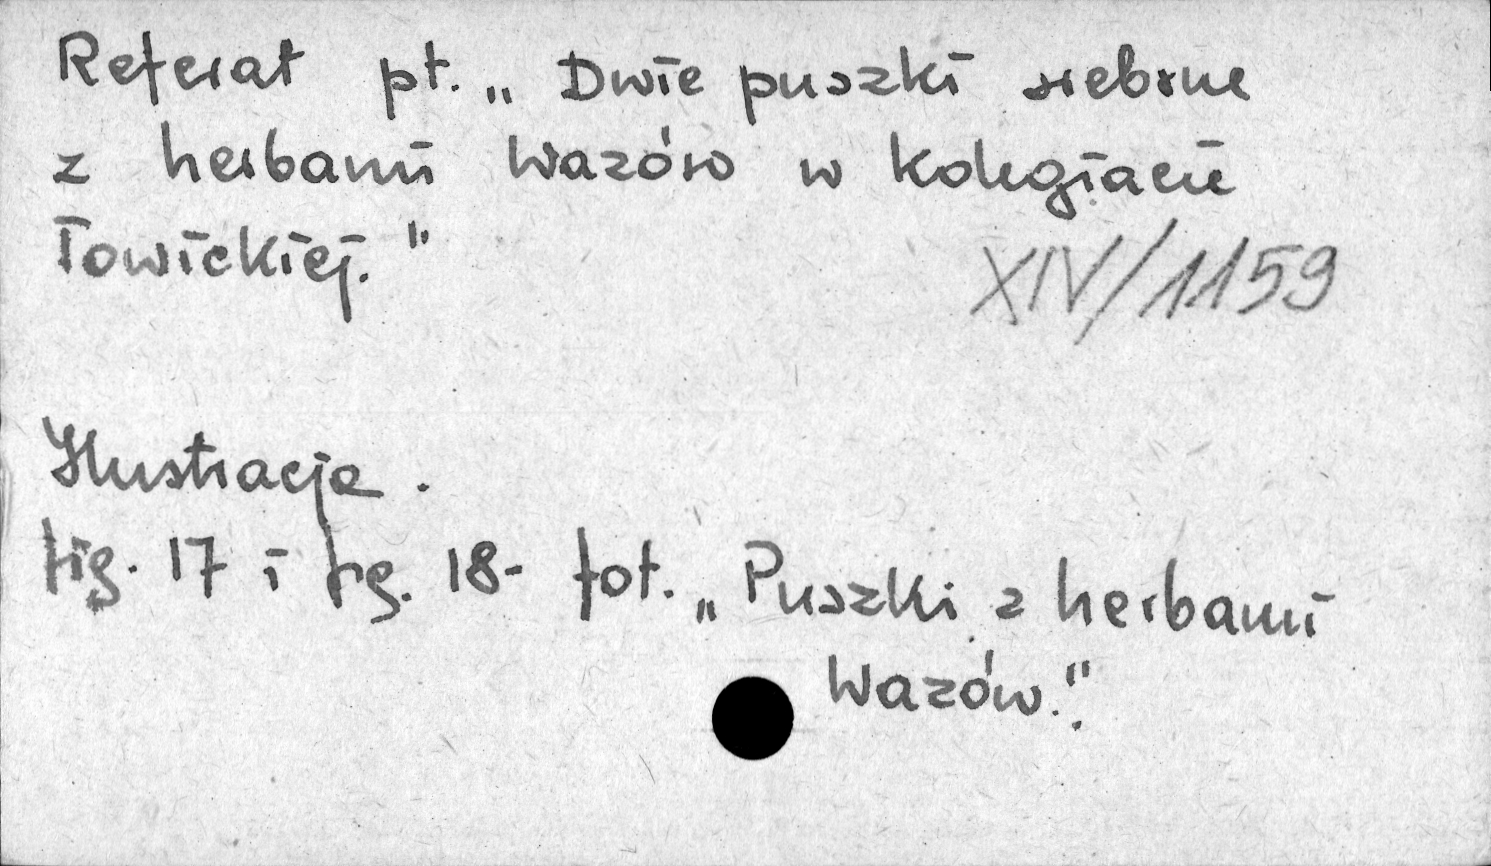 Referat pt. „Dwie puszki srebrne
z herbami Wazów w Kolegiacie
Łowickiej."
XIV/1159
Ilustracje.
fig. 17 i fig. 18- fot. „Puszki z herbami
Wazów."